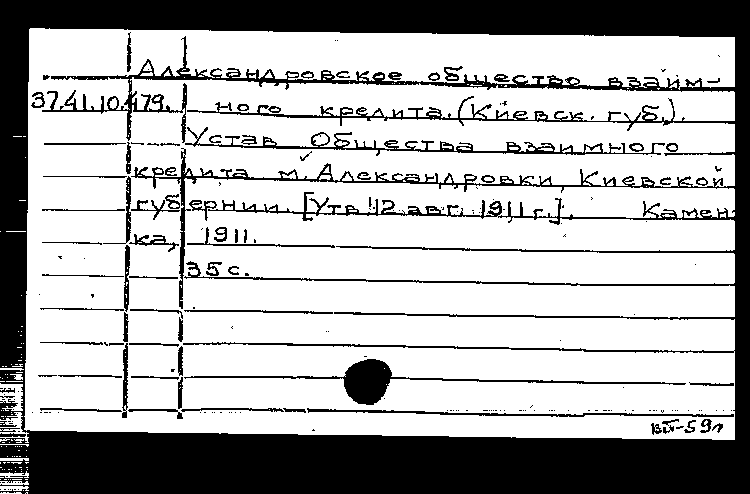 Александровское общество взаим-
37.41.10.479. ного кредита. (Киевск. губ.).
Устав Общества взаимного
кредита м. Александровки, Киевской
губернии. [Утв. 12 авг. 1911 г.]. Камен-
ка, 1911.
35 с.